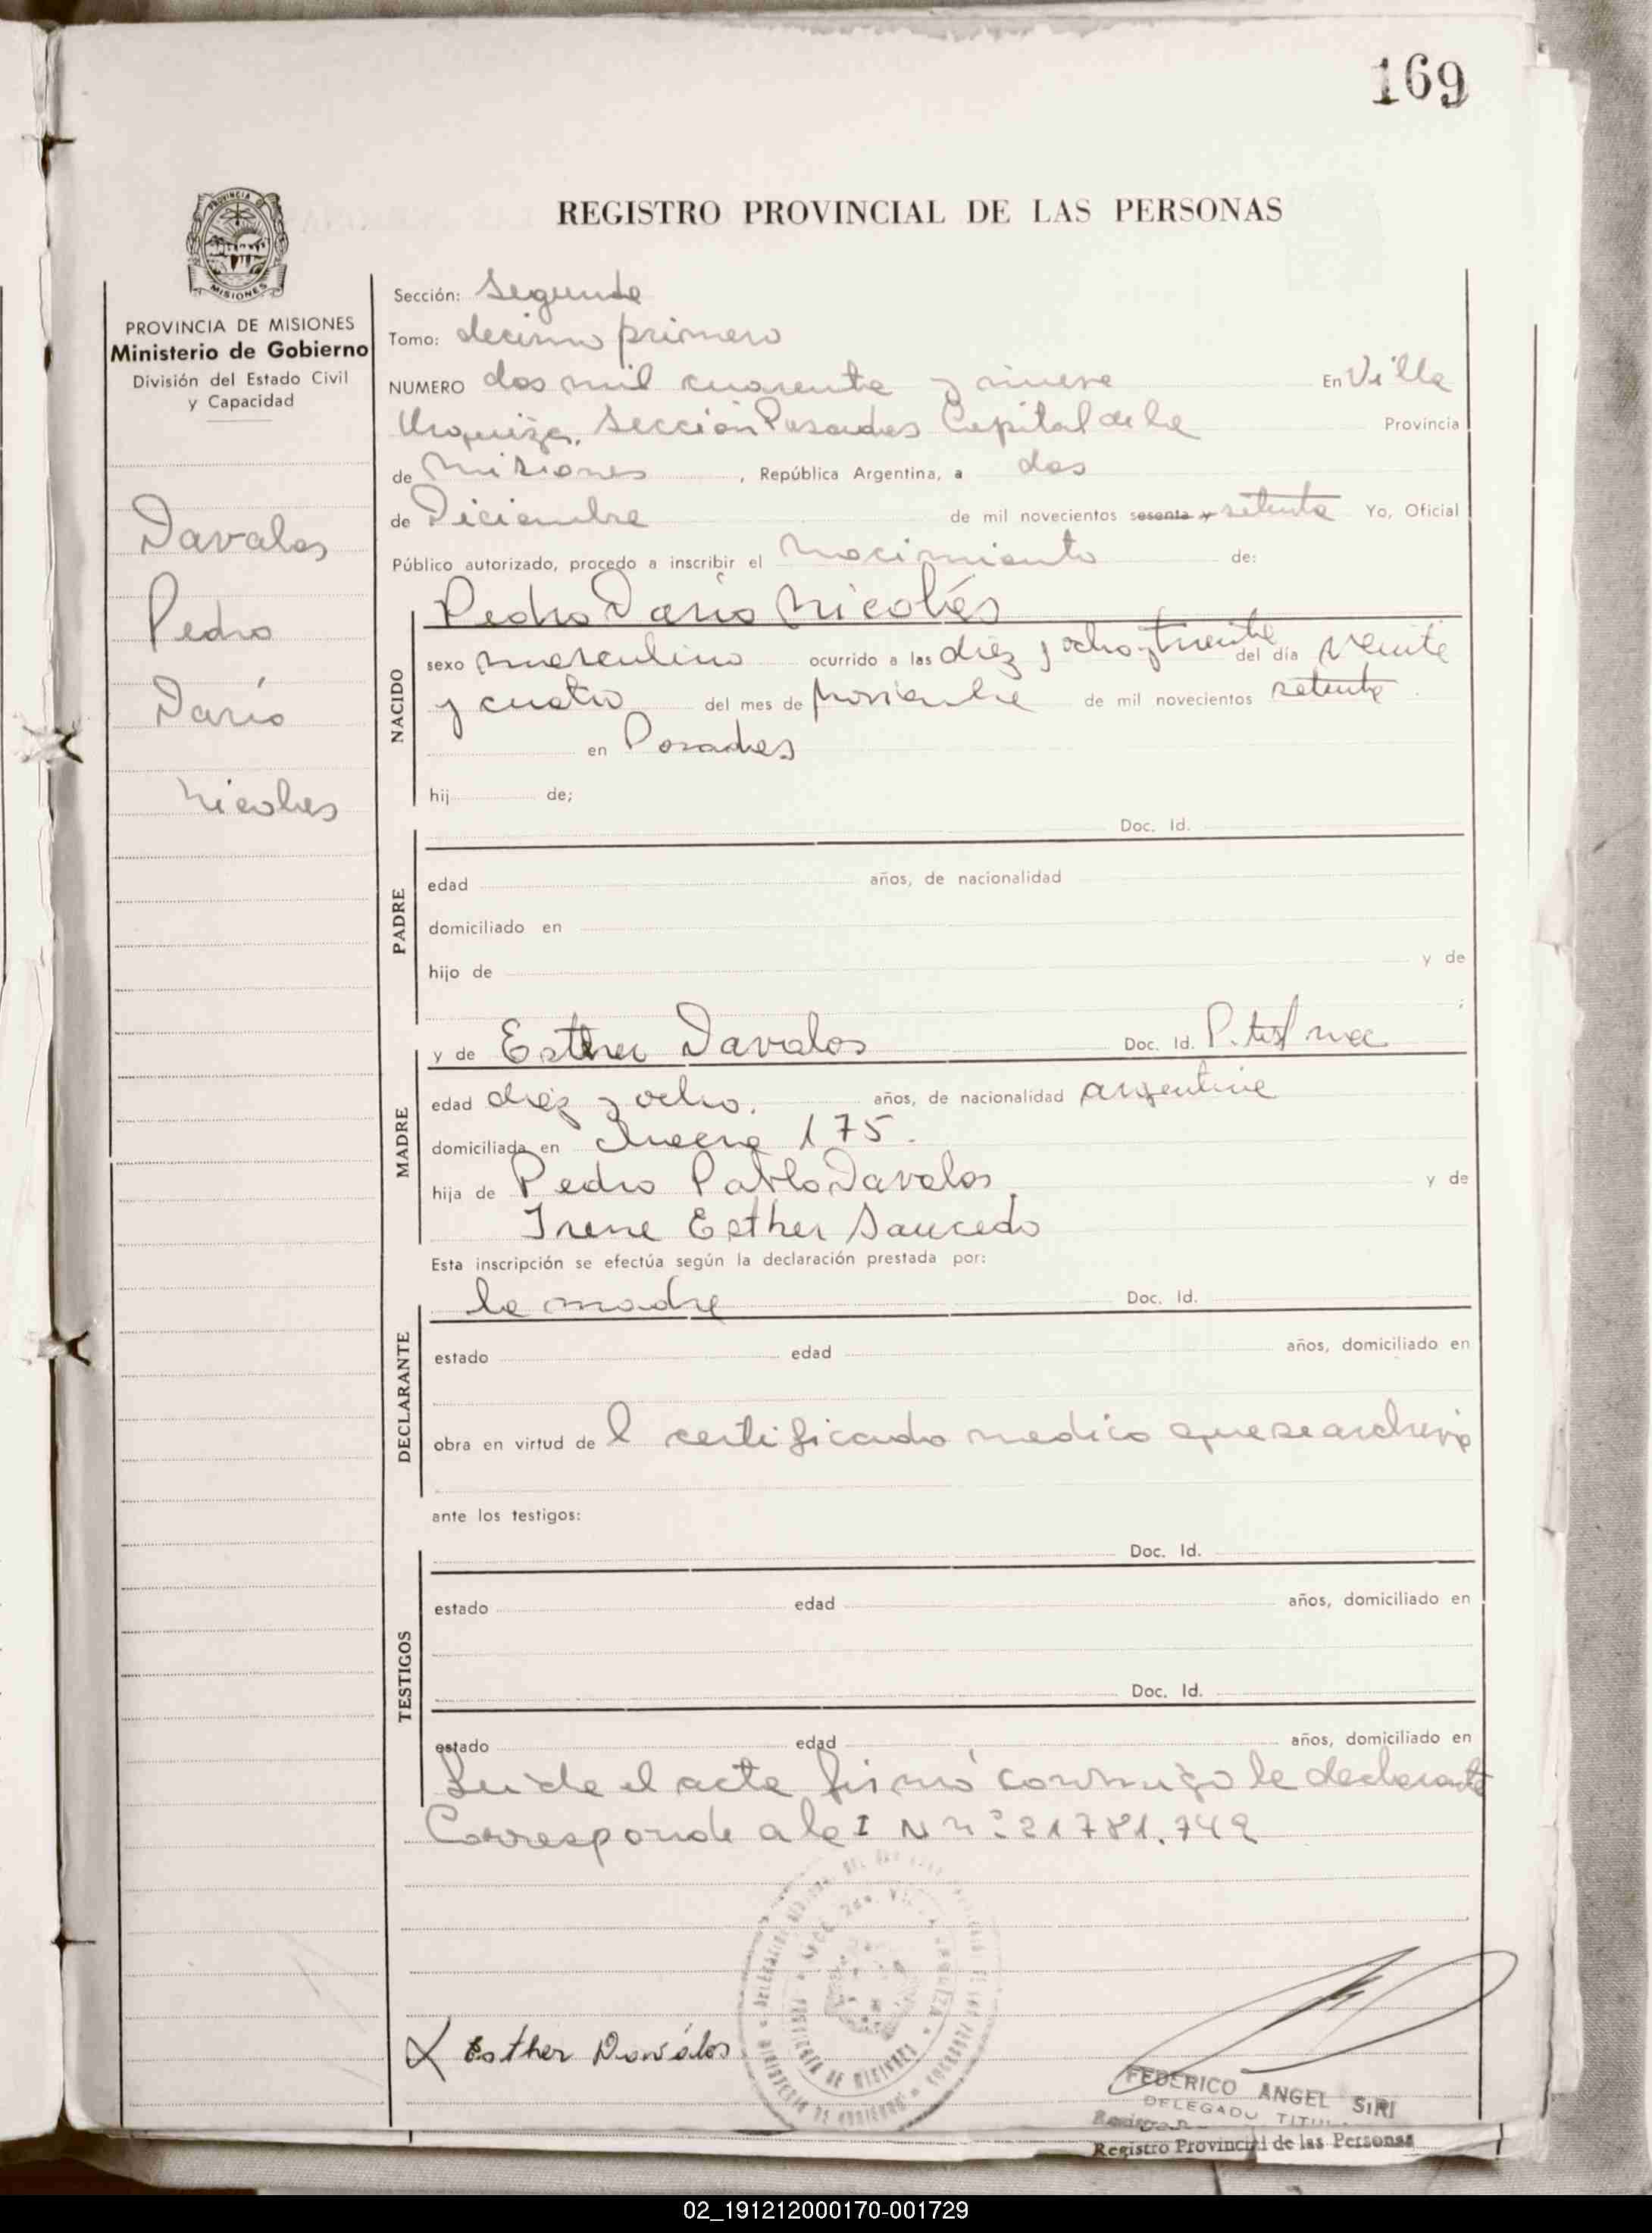 169
PROVINCIA DE
MISIONES
REGISTRO PROVINCIAL DE LAS PERSONAS
PROVINCIA DE MISIONES
Ministerio de Gobierno
División del Estado Civil
y Capacidad
Davalos
Pedro
Darío
Nicolas
Sección: Segunda
Tomo: decimo primero
NUMERO dos mil cuarenta y nueve En Villa
Urquiza, Sección Posadas Capital de la Provincia
de Misiones, República Argentina, a dos
de Diciembre de mil novecientos sesenta y setenta Yo, Oficial
Público autorizado, procedo a inscribir el Nacimiento de:
NACIDO
Pedro Dario Nicolás
sexo masculino ocurrido a las diez y ocho y treinta del día veinte
y cuatro del mes de Noviembre de mil novecientos setenta
en Posadas
hij de;
Doc. Id.
PADRE
edad años, de nacionalidad
domiciliado en
hijo de y de
;
MADRE
y de Esther Davalos Doc. Id. P. test nac
edad diez y ocho. años, de nacionalidad argentina
domiciliada en 175.
hija de Pedro Pablo Davalos y de
Irene Esther Saucedo
Esta inscripción se efectúa según la declaración prestada por:
DECLARANTE
la madre Doc. Id.
estado edad años, domiciliado en
obra en virtud de l certificado medico que se archiva
ante los testigos:
TESTIGOS
Doc. Id.
estado edad años, domiciliado en
Doc. Id.
estado edad años, domiciliado en
Leida el acta firmó conmigo la declarante
Corresponde a la I N nº 21781.749
Esther Daválos
FEDERICO ANGEL SIRI
DELEGADO
Registro Provincial de las Personas
02_191212000170-001729